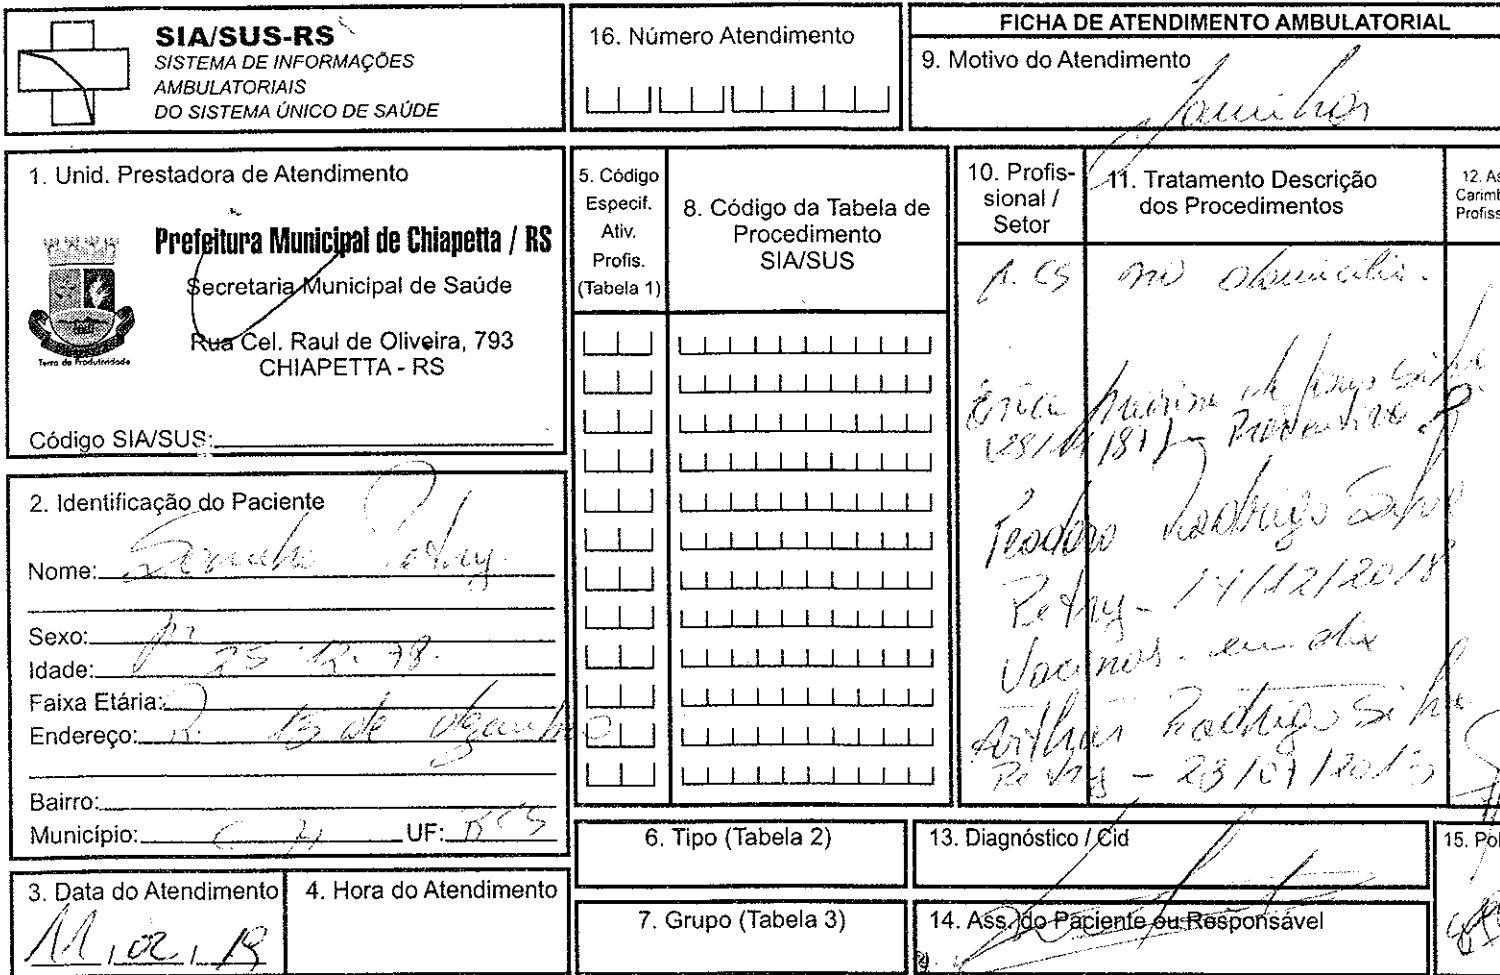 SIA/SUS-RS
SISTEMA DE INFORMAÇÕES
AMBULATORIAIS
DO SISTEMA ÚNICO DE SAÚDE
16. Número Atendimento
FICHA DE ATENDIMENTO AMBULATORIAL
9. Motivo do Atendimento
1. Unid. Prestadora de Atendimento
Prefeitura Municipal de Chiapetta / RS
Secretaria Municipal de Saúde
Rua Cel. Raul de Oliveira, 793
CHIAPETTA - RS
Terra da Produtividade
Código SIA/SUS:
2. Identificação do Paciente
Nome: Petry
Sexo: M
Idade: 25.12.78.
Faixa Etária:
Endereço: R. 15 de
Bairro:
Município: CH UF: RS
3. Data do Atendimento
11,02,19
4. Hora do Atendimento
5. Código
Especif.
Ativ.
Profis.
(Tabela 1)
8. Código da Tabela de
Procedimento
SIA/SUS
6. Tipo (Tabela 2)
7. Grupo (Tabela 3)
10. Profis-
sional /
Setor
11. Tratamento Descrição
dos Procedimentos
12. As
Carimb
Profiss
no domicilio.
Silva
Teodoro Rodrigo Silva
Petry - 14/12/2018
Vacinas em dia
Arthur Rodrigo Silva
Petry - 23/07/2015
13. Diagnóstico / Cid
14. Ass. do Paciente ou Responsável
15. Pol